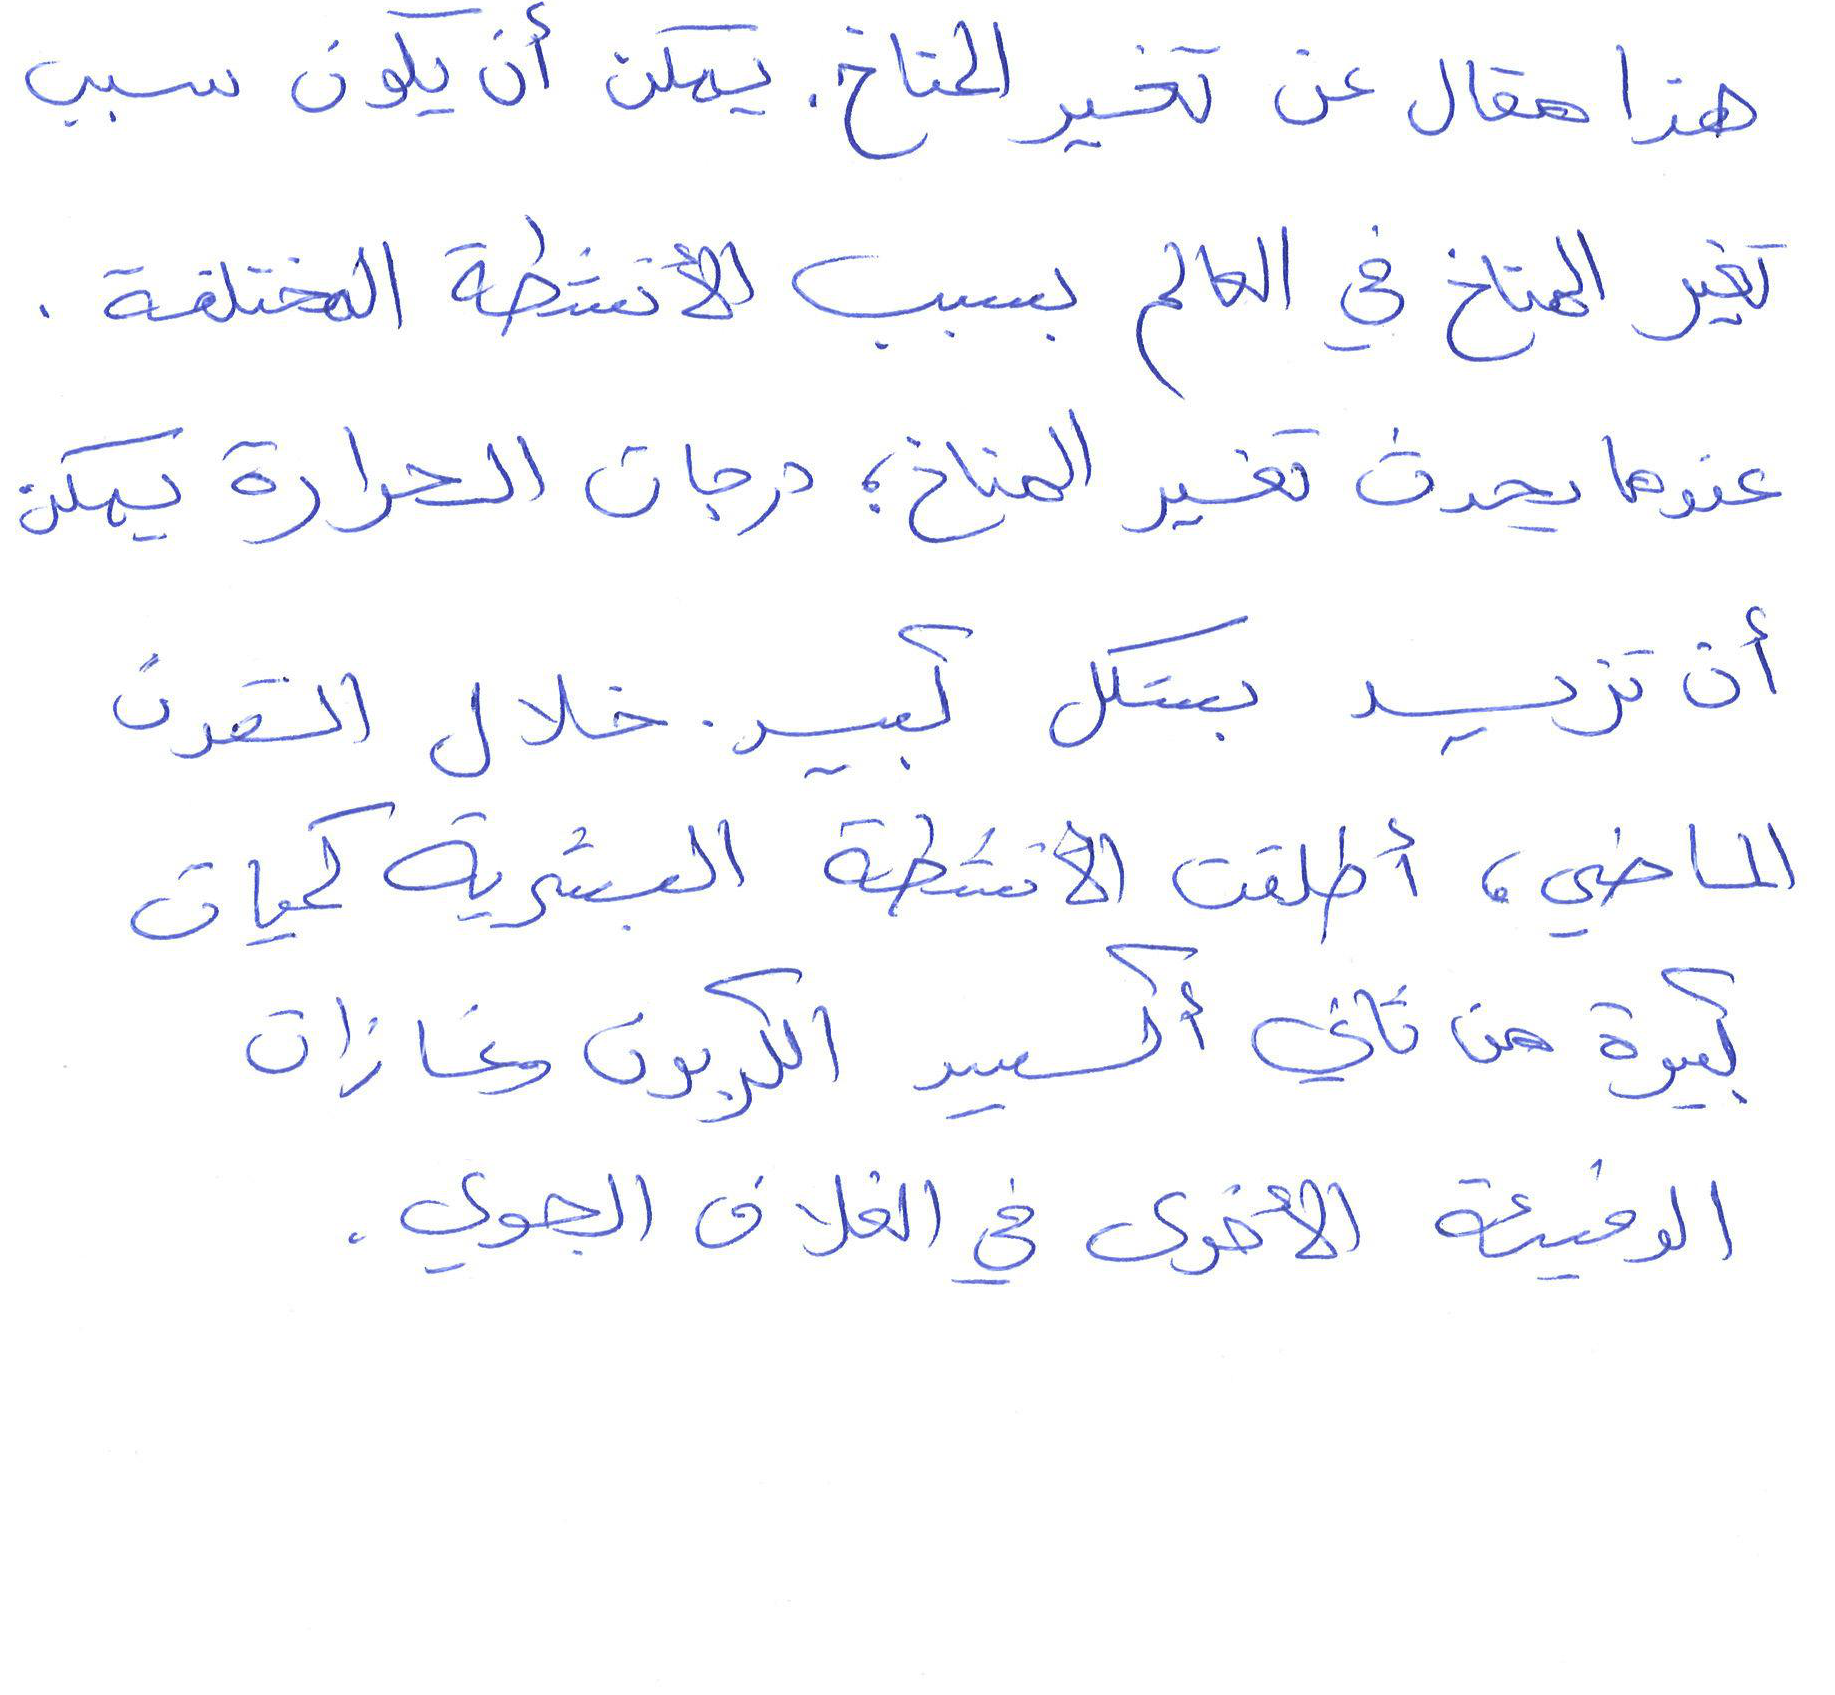 هذا مقال عن تغير المناخ. يمكن أن يكون سبب
تغير المناخ في العالم بسبب الأنشطة المختلفة.
عندما يحدث تغير المناخ؛ درجات الحرارة يمكن
أن تزيد بشكل كبير. خلال القرن
الماضي، أطلقت الأنشطة البشرية كميات
كبيرة من ثاني أكسيد الكربون وغازات
الدفيئة الأخرى في الغلاف الجوي.